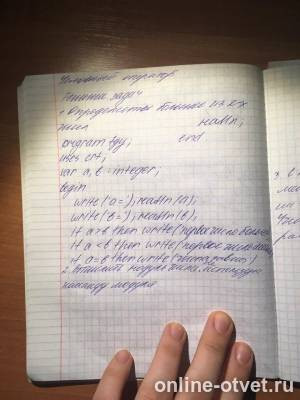 Условный оператор
Решение задач
1 определить большее из 2х
чисел readln;
program fgy; end
uses crt;
var a, b = integer;
begin
write('a='); readln(a);
write('b='); readln(b);
if a>b then write(первое число больше
if a<b then write(первое число
if a=b then write(
2 модуль числа, используя
команду модуля
online-otvet.ru